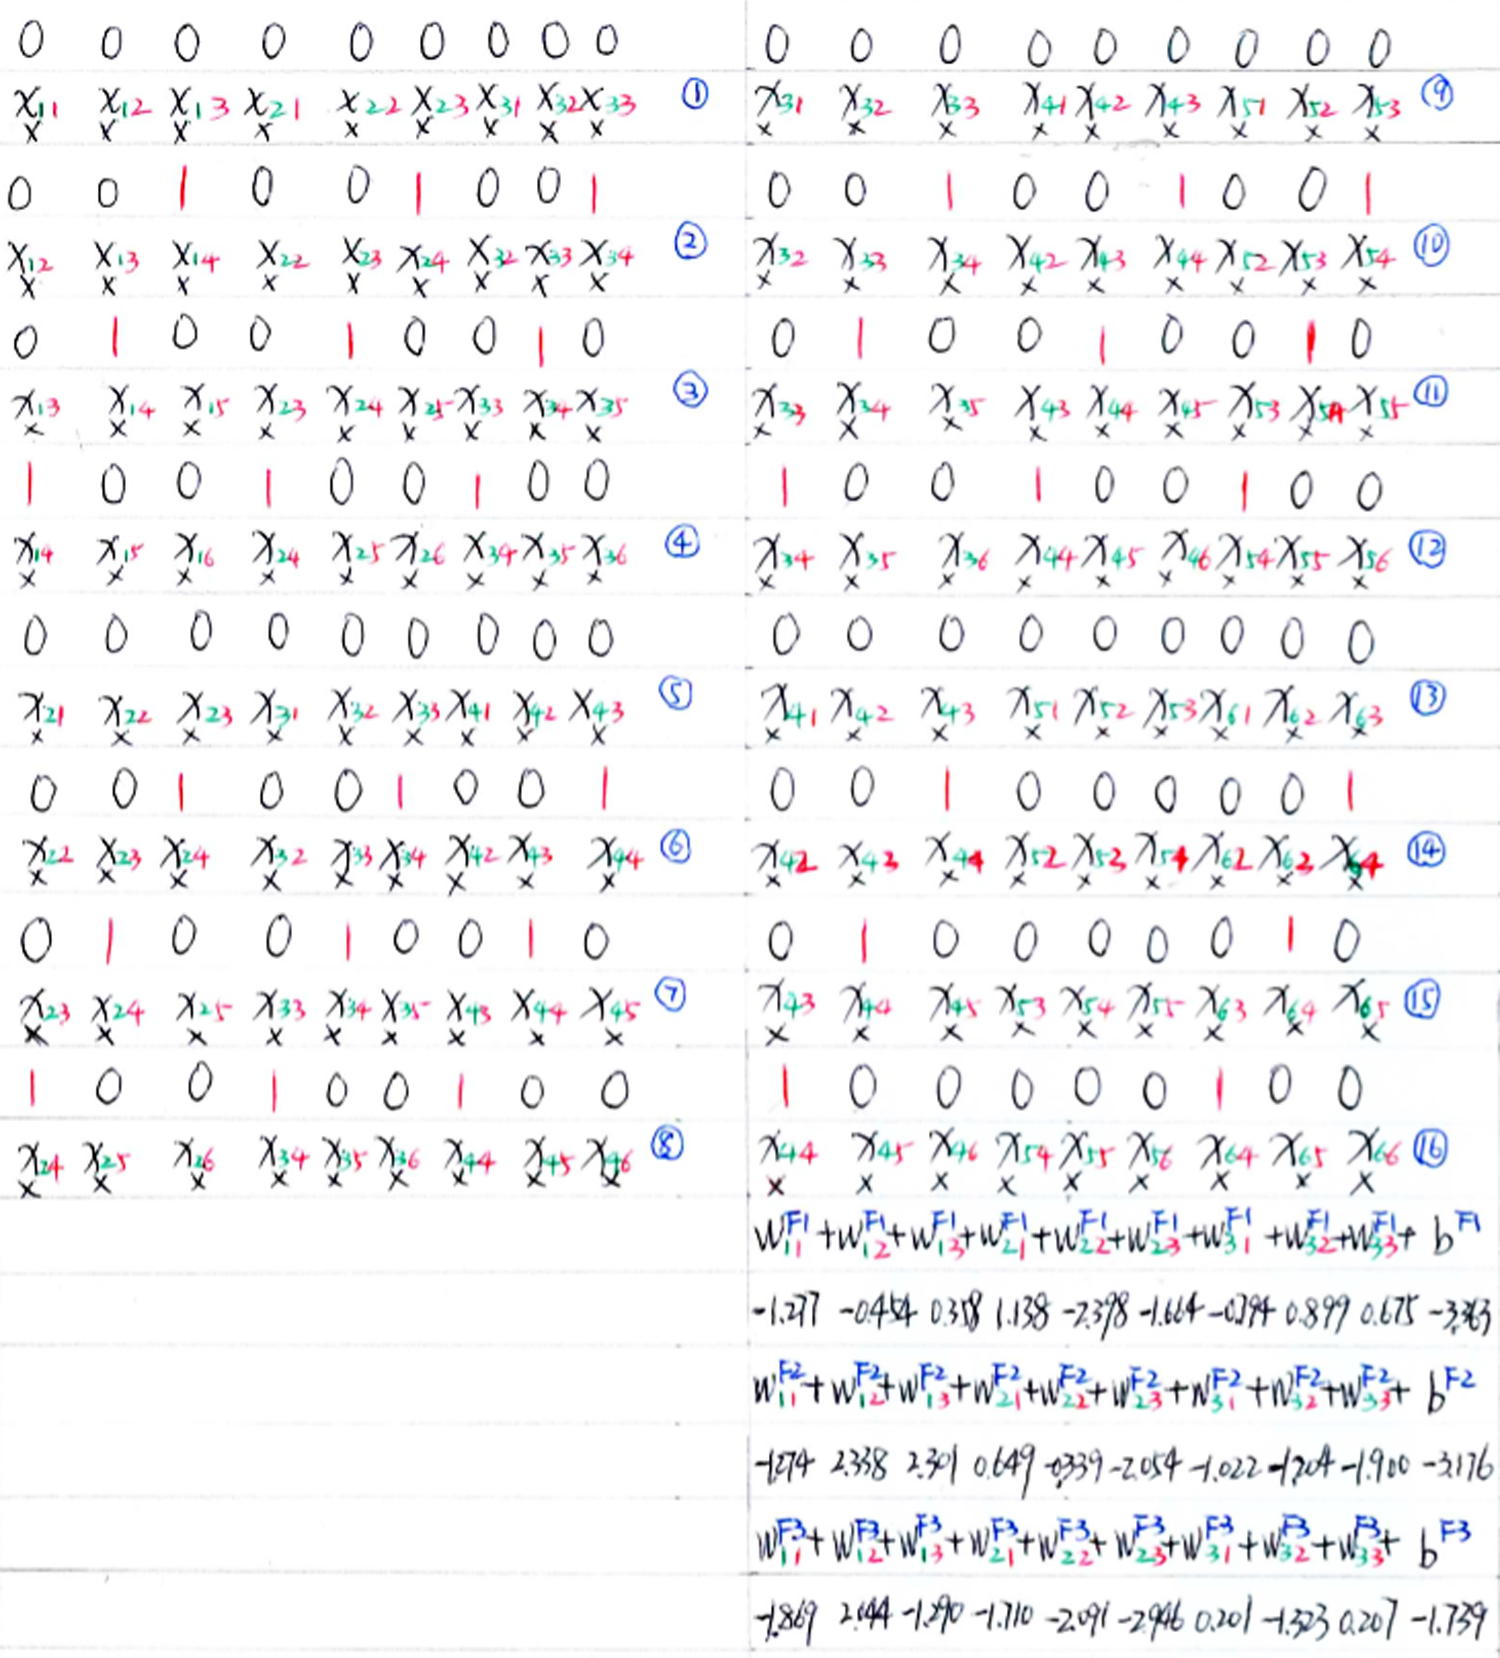 0 0 0 0 0 0 0 0 0
x11 x12 x13 x21 x22 x23 x31 x32 x33 ①
× × × × × × × × ×
0 0 1 0 0 1 0 0 1
x12 x13 x14 x22 x23 x24 x32 x33 x34 ②
× × × × × × × × ×
0 1 0 0 1 0 0 1 0
x13 x14 x15 x23 x24 x25 x33 x34 x35 ③
× × × × × × × × ×
1 0 0 1 0 0 1 0 0
x14 x15 x16 x24 x25 x26 x34 x35 x36 ④
× × × × × × × × ×
0 0 0 0 0 0 0 0 0
x21 x22 x23 x31 x32 x33 x41 x42 x43 ⑤
× × × × × × × × ×
0 0 1 0 0 1 0 0 1
x22 x23 x24 x32 x33 x34 x42 x43 x44 ⑥
× × × × × × × × ×
0 1 0 0 1 0 0 1 0
x23 x24 x25 x33 x34 x35 x43 x44 x45 ⑦
× × × × × × × × ×
1 0 0 1 0 0 1 0 0
x24 x25 x26 x34 x35 x36 x44 x45 x46 ⑧
× × × × × × × × ×
0 0 0 0 0 0 0 0 0
x31 x32 x33 x41 x42 x43 x51 x52 x53 ⑨
× × × × × × × × ×
0 0 1 0 0 1 0 0 1
x32 x33 x34 x42 x43 x44 x52 x53 x54 ⑩
× × × × × × × × ×
0 1 0 0 1 0 0 1 0
x33 x34 x35 x43 x44 x45 x53 x54 x55 ⑪
× × × × × × × × ×
1 0 0 1 0 0 1 0 0
x34 x35 x36 x44 x45 x46 x54 x55 x56 ⑫
× × × × × × × × ×
0 0 0 0 0 0 0 0 0
x41 x42 x43 x51 x52 x53 x61 x62 x63 ⑬
× × × × × × × × ×
0 0 1 0 0 0 0 0 1
x42 x43 x44 x52 x53 x54 x62 x63 x64 ⑭
× × × × × × × × ×
0 1 0 0 0 0 0 1 0
x43 x44 x45 x53 x54 x55 x63 x64 x65 ⑮
× × × × × × × × ×
1 0 0 0 0 0 1 0 0
x44 x45 x46 x54 x55 x56 x64 x65 x66 ⑯
× × × × × × × × ×
w11^F1 + w12^F1 + w13^F1 + w21^F1 + w22^F1 + w23^F1 + w31^F1 + w32^F1 + w33^F1 + b^F1
-1.277 -0.454 0.358 1.138 -2.398 -1.664 -0.794 0.899 0.675 -3.363
w11^F2 + w12^F2 + w13^F2 + w21^F2 + w22^F2 + w23^F2 + w31^F2 + w32^F2 + w33^F2 + b^F2
-1.274 2.338 2.301 0.649 -0.339 -2.054 -1.022 -1.204 -1.900 -3.176
w11^F3 + w12^F3 + w13^F3 + w21^F3 + w22^F3 + w23^F3 + w31^F3 + w32^F3 + w33^F3 + b^F3
-1.869 2.044 -1.290 -1.710 -2.091 -2.946 0.201 -1.323 0.207 -1.739